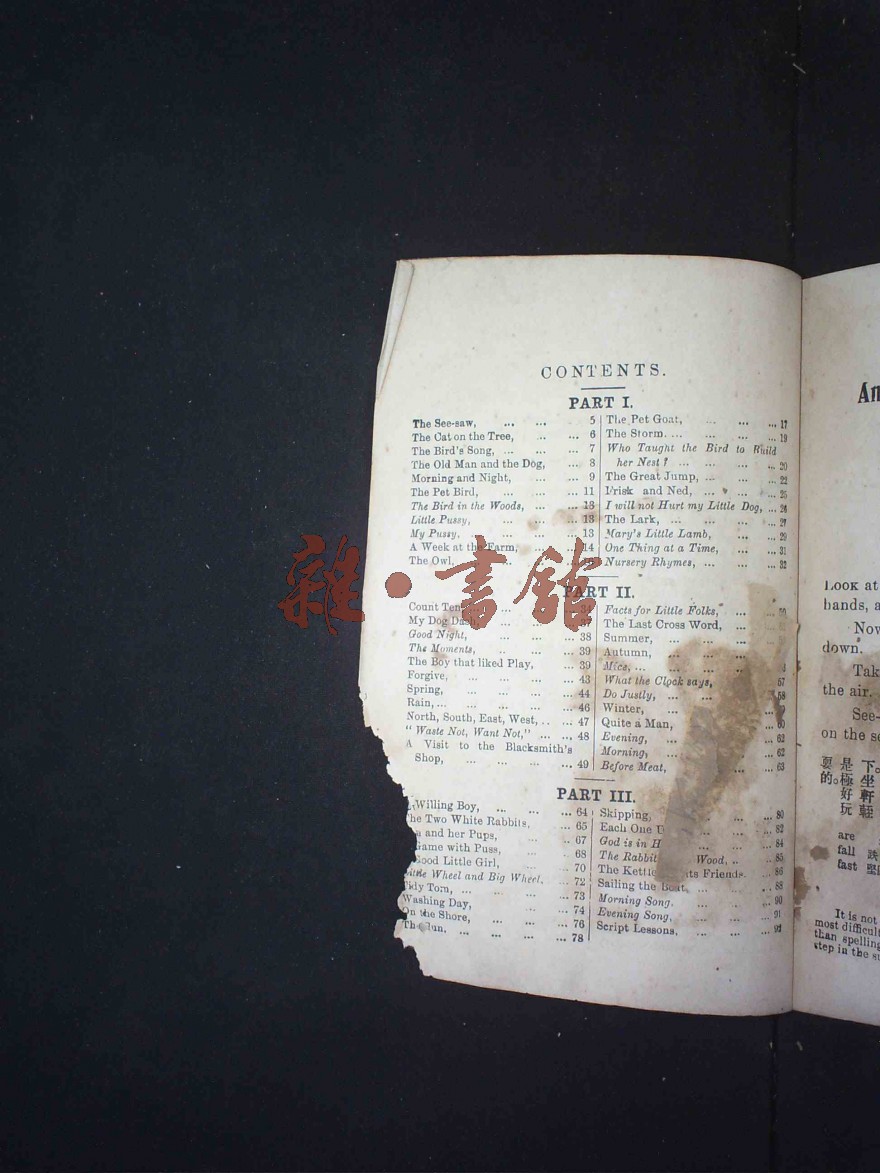 CONTENTS.
PART I.
The See-saw, ... ... 5
The Cat on the Tree, ... ... 6
The Bird's Song, ... ... 7
The Old Man and the Dog, ... 8
Morning and Night, ... 9
The Pet Bird, ... ... ... 11
The Bird in the Woods, ... ... 13
Little Pussy, ... ... ... 13
My Pussy, ... ... ... 13
A Week at the Farm, ... ... 14
The Owl, ... ...
The Pet Goat, ... ... ... 17
The Storm. ... ... ... ... 19
Who Taught the Bird to Build
her Nest? ... ... ... ... 20
The Great Jump, ... ... ... 22
Frisk and Ned, ... ... ... 25
I will not Hurt my Little Dog, ... 26
The Lark, ... ... ... ... 27
Mary's Little Lamb, ... ... 29
One Thing at a Time, ... ... 31
Nursery Rhymes, ... ... ... 32
PART II.
Count Ten, ... ... 34
My Dog Dash, ... ... 37
Good Night, ... ... ... 38
The Moments, ... ... ... 39
The Boy that liked Play, ... 39
Forgive, ... ... ... ... 43
Spring, ... ... ... ... 44
Rain, ... ... ... ... ... 46
North, South, East, West, .. ... 47
" Waste Not, Want Not," ... ... 48
A Visit to the Blacksmith's
Shop, ... ... ... ... 49
Facts for Little Folks, ... ...
The Last Cross Word, ... ...
Summer, ... ... ... ...
Autumn, ... ... ...
Mice, ... ... ...
What the Clock says, 57
Do Justly, ... ... 58
Winter, ... ...
Quite a Man, 60
Evening, ... ... 62
Morning, ... ... 62
Before Meat, ... ... 63
PART III.
Willing Boy, ... ... ... 64
The Two White Rabbits, ... 65
and her Pups, ... .. 67
Game with Puss, ... .. 68
Good Little Girl, ... .. 70
Little Wheel and Big Wheel, ... 72
Tidy Tom, ... ... ... ... 73
Washing Day, ... ... ... 74
On the Shore, ... ... ... 76
The ... ... ... ... 78
Skipping, ... ... ... ... 80
Each One ... 82
God is in ... 84
The Rabbit Wood, .. 85
The Kettle its Friends. ... 86
Sailing the Boat, ... ... ... 88
Morning Song, ... ... ... 90
Evening Song, ... ... ... 91
Script Lessons, ... ... ... 92
An
Look at
hands, a
Now
down.
Tak
the air.
See-
on the se
下。
坐
軒
輊
是
極
好
玩
耍
的。
are
fall 跌
fast 堅
It is not
most difficult
than spelling
step in the su
雜·書館